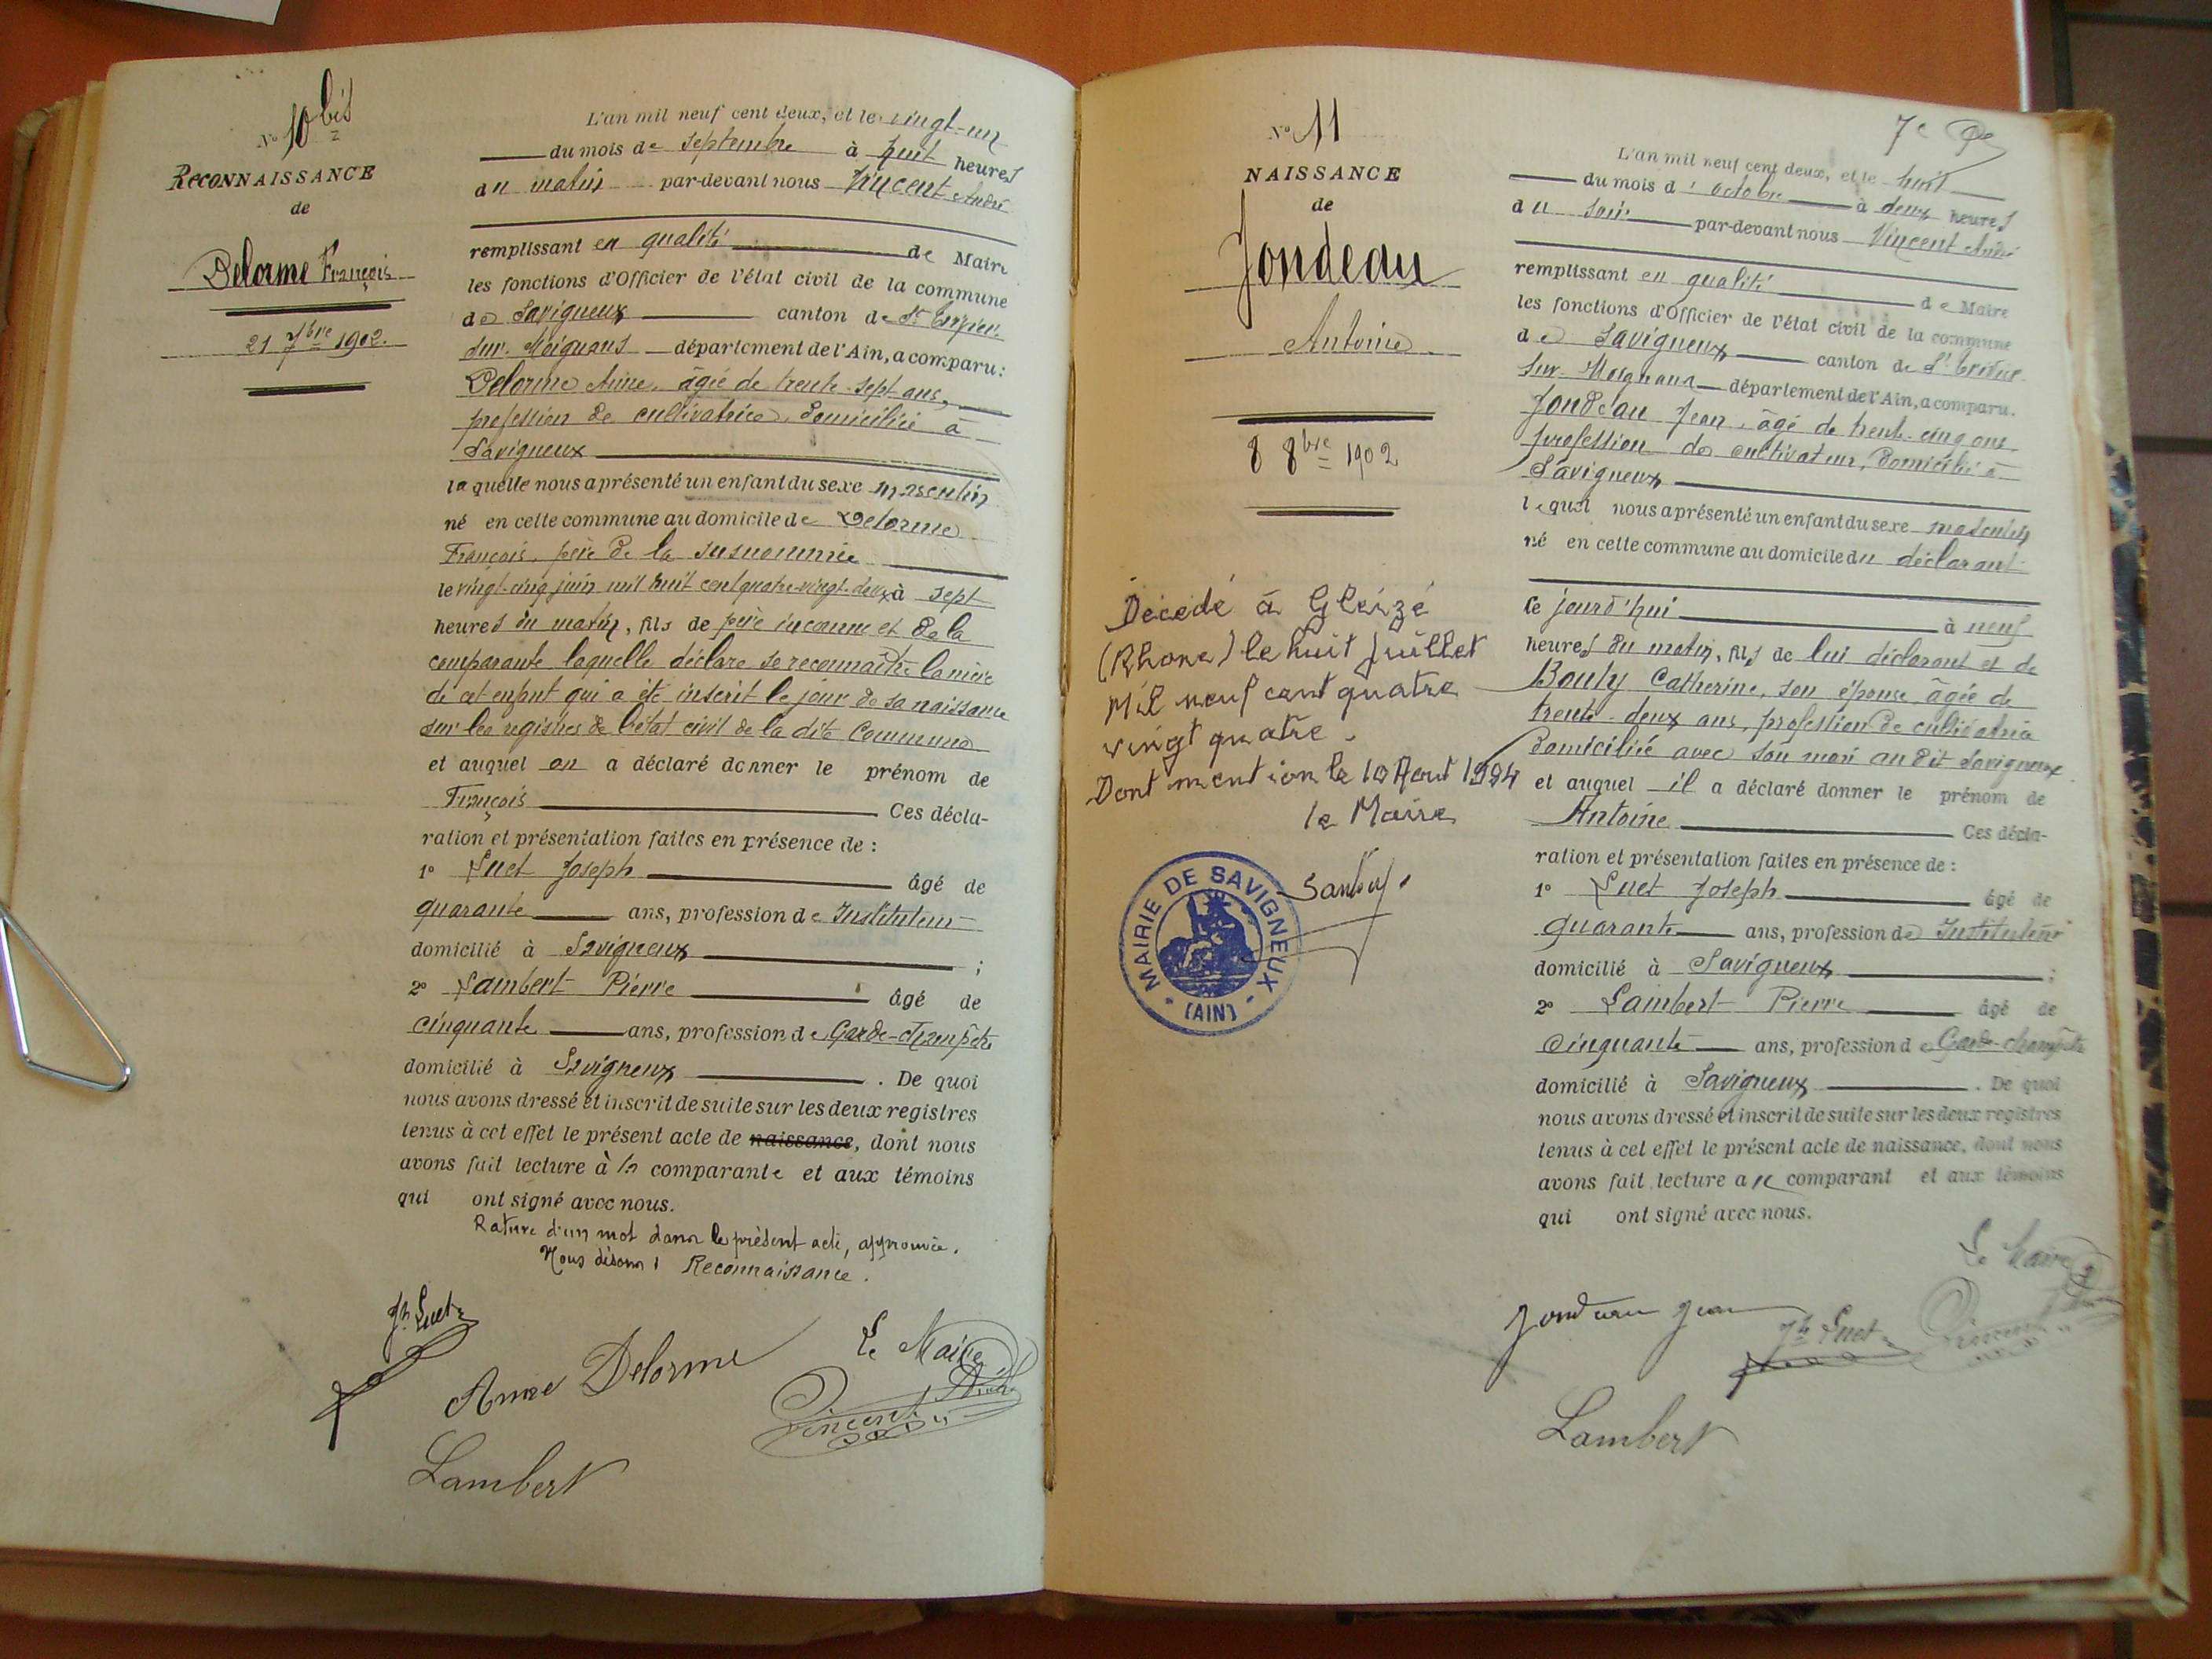 N° 10 bis
RECONNAISSANCE
de
Delorme François
21 7bre 1902.
L'an mil neuf cent deux, et le vingt-un
du mois de septembre à huit heures
du matin par-devant nous Vincent André
remplissant en qualité de Maire
les fonctions d'Officier de l'état civil de la commune
de Savigneux canton de St Trivier
sur-Moignans département de l'Ain, a comparu:
Delorme Anne, âgée de trente-sept ans,
profession de cultivatrice, domiciliée à
Savigneux
laquelle nous a présenté un enfant du sexe masculin
né en cette commune au domicile de Delorme
François, père de la susnommée
le vingt-cinq juin mil huit cent quatre-vingt-deux à sept
heures du matin, fils de père inconnu et de la
comparante laquelle déclare se reconnaître la mère
de cet enfant qui a été inscrit le jour de sa naissance
sur les registres de l'état civil de la dite Commune
et auquel on a déclaré donner le prénom de
François Ces décla-
ration et présentation faites en présence de :
1° Luet Joseph âgé de
quarante ans, profession de Instituteur
domicilié à Savigneux ;
2° Lambert Pierre âgé de
cinquante ans, profession de Garde-Champêtre
domicilié à Savigneux . De quoi
nous avons dressé et inscrit de suite sur les deux registres
tenus à cet effet le présent acte de naissance, dont nous
avons fait lecture à la comparante et aux témoins
qui ont signé avec nous.
Rature d'un mot dans le présent acte, approuvée.
Nous disons : Reconnaissance.
Jh Luet
Anne Delorme
Le Maire
Vincent André
Lambert
N° 11
NAISSANCE
de
Jondeau
Antoine
8 8bre 1902
Décédé à Gleizé
(Rhone) le huit Juillet
Mil neuf cent quatre
vingt quatre.
Dont mention le 10 Aout 1984
le Maire
MAIRIE DE SAVIGNEUX
(AIN)
7e
L'an mil neuf cent deux, et le huit
du mois d'octobre à deux heures
du soir par-devant nous Vincent André
remplissant en qualité de Maire
les fonctions d'Officier de l'état civil de la commune
de Savigneux canton de St Trivier
sur-Moignans département de l'Ain, a comparu.
Jondeau Jean, âgé de trente-cinq ans
profession de cultivateur, domicilié à
Savigneux
lequel nous a présenté un enfant du sexe masculin
né en cette commune au domicile du déclarant
ce jourd'hui à neuf
heures du matin, fils de lui déclarant et de
Bouly Catherine, son épouse, âgée de
trente-deux ans, profession de cultivatrice
domiciliée avec son mari au dit Savigneux
et auquel il a déclaré donner le prénom de
Antoine Ces décla-
ration et présentation faites en présence de :
1° Luet Joseph âgé de
quarante ans, profession de Instituteur
domicilié à Savigneux ;
2° Lambert Pierre âgé de
Cinquante ans, profession de Garde-champêtre
domicilié à Savigneux . De quoi
nous avons dressé et inscrit de suite sur les deux registres
tenus à cet effet le présent acte de naissance, dont nous
avons fait lecture au comparant et aux témoins
qui ont signé avec nous.
Le Maire
Jondeau Jean
Jh Luet
Vincent
Lambert